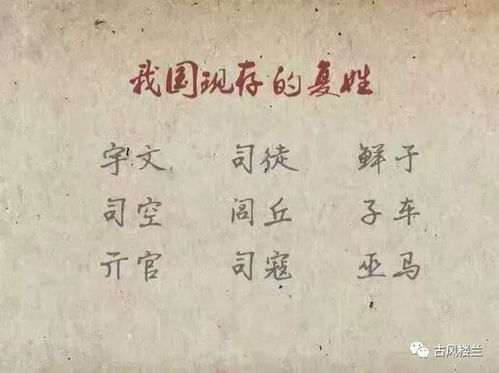 我国现存的复姓
宇文 司徒 鲜于
司空 闾丘 子车
亓官 司寇 巫马
古风楼兰